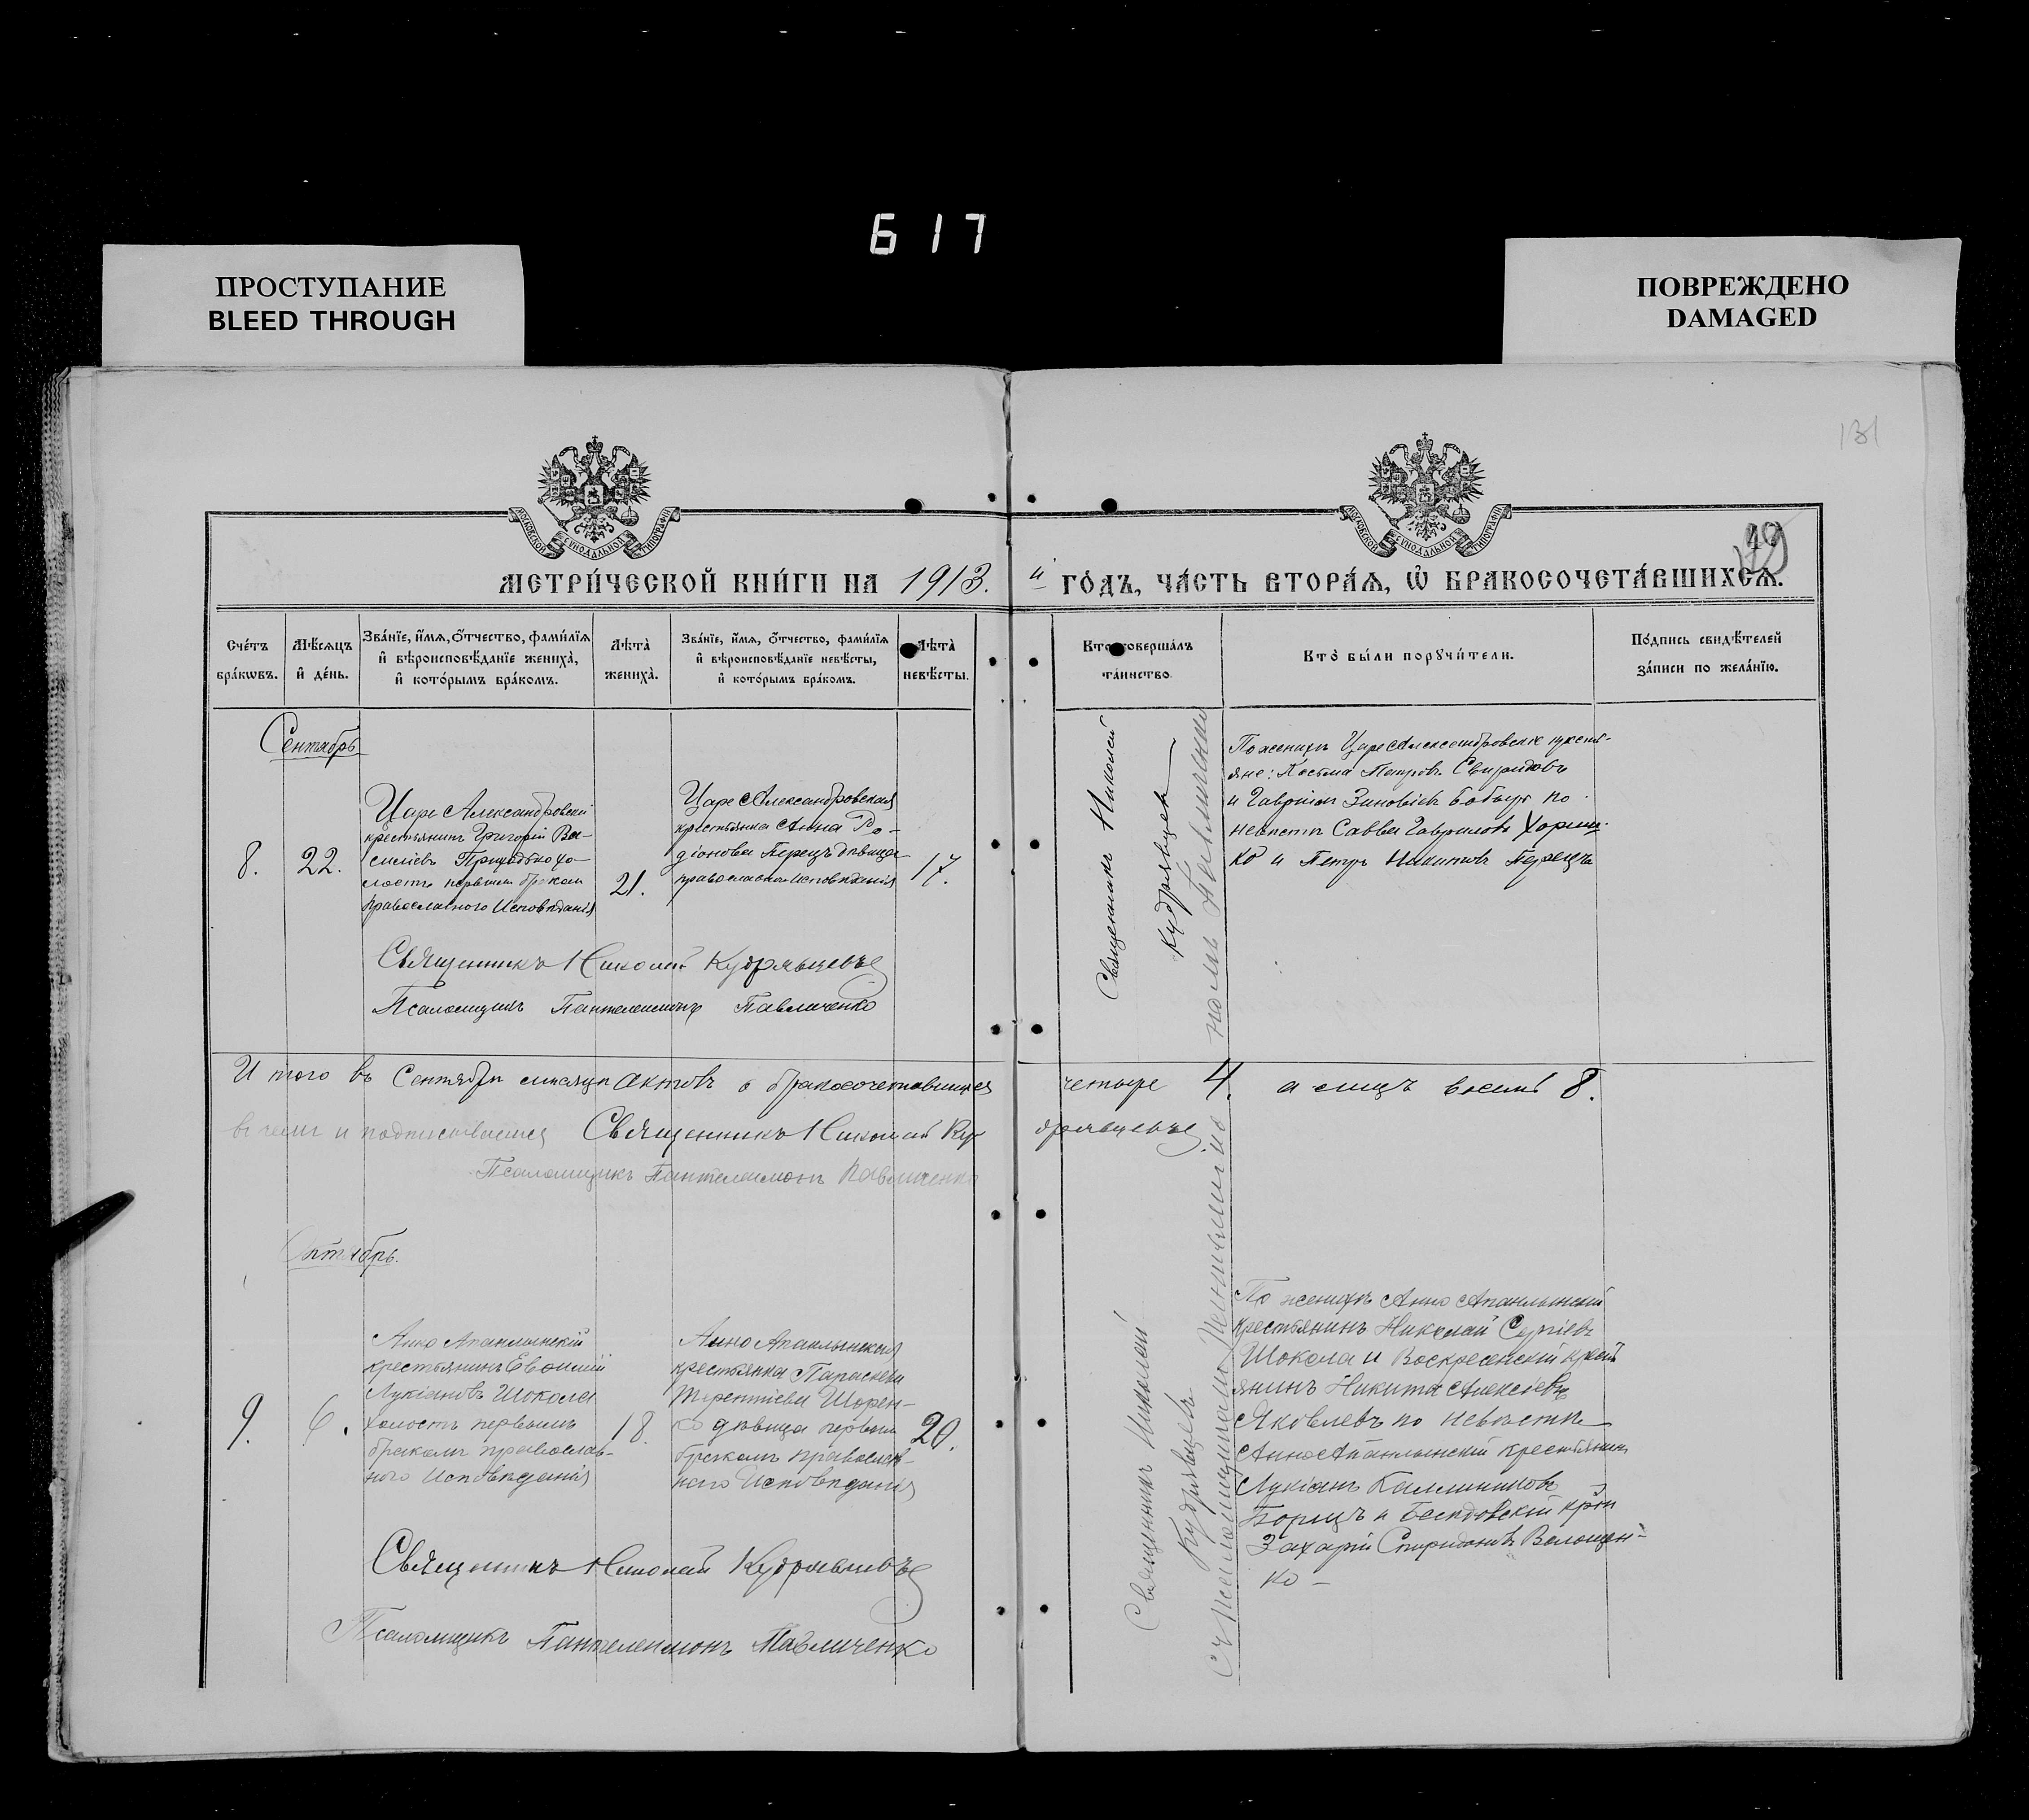 617
ПРОСТУПАНИЕ
BLEED THROUGH
ПОВРЕЖДЕНО
DAMAGED
131
49
МОСКОВСКОЙ СУНОДАЛЬНОЙ ТИПОГРАФІИ
МОСКОВСКОЙ СУНОДАЛЬНОЙ ТИПОГРАФІИ
МЕТРИ́ЧЕСКОЙ КНИ́ГИ НА 1913.
ГО́ДЪ, ЧА́СТЬ ВТОРА́Я, Ѡ БРАКОСОЧЕТА́ВШИХСЯ.
Сче́тъ бра́кѡвъ.
Мѣ́сяцъ и де́нь.
Зва́нїе, и́мя, о́тчество, фами́лїя
и вѣроисповѣ́данїе жениха̀,
и кото́рымъ бра́комъ.
Лѣта̀ жениха̀.
Зва́нїе, и́мя, о́тчество, фами́лїя
и вѣроисповѣ́данїе невѣ́сты,
и кото́рымъ бра́комъ.
Лѣта̀ невѣ́сты.
Кто̀ соверша́лъ та́инство.
Кто̀ бы́ли порꙋчи́тели.
По́дпись свидѣ́телей
за́писи по жела́нїю.
Сентябрь
8.
22.
Царе Александровскій
крестьянинъ Григорій Ва-
силіевъ Приходько хо-
лостъ первымъ бракомъ
православнаго Исповѣданія
21.
Царе Александровская
крестьянка Анна Ро-
діонова Перецъ дѣвица
православнаго исповѣданія
17.
Священникъ Николай
Кудрявцевъ
По женихѣ Царе Александровскіе крестьяне: Косьма Петровъ Свиридовъ
и Гавріилъ Зиновіевъ по
невѣстѣ Савва Гавриловъ
ко и Петръ Никитовъ Перецъ
Священникъ Николай Кудрявцевъ
Псаломщикъ Пантелеимонъ Павличенко
Итого въ Сентябрѣ мѣсяцѣ актовъ о бракосочетавшихся четыре 4. а лицъ восемь 8.
въ чемъ и подписываемся Священникъ Николай Кудрявцевъ
Псаломщикъ Пантелеимонъ Павличенко
Октябрь.
9.
6.
Анно Апанлынскій
крестьянинъ Евѳимій
Лукіановъ Шокола
холостъ первымъ
бракомъ православ-
наго Исповѣданія
18.
Анно Апанлынская
крестьянка Параскева
Терентіева Шорен-
ко дѣвица первымъ
бракомъ православ-
наго Исповѣданія
20.
Священникъ Николай
Кудрявцевъ
съ псаломщикомъ
По женихѣ Анно Апанлынскій
крестьянинъ Николай Сергіевъ
Шокола и Воскресенскій крест
янинъ Никита Алексіевъ
Яковлевъ по невѣстѣ
Анно Апанлынскій крестьянинъ
Лукіанъ Каллиниковъ
Борщъ и
Захарій Спиридоновъ Волошен-
ко
Священникъ Николай Кудрявцевъ
Псаломщикъ Пантелеимонъ Павличенко